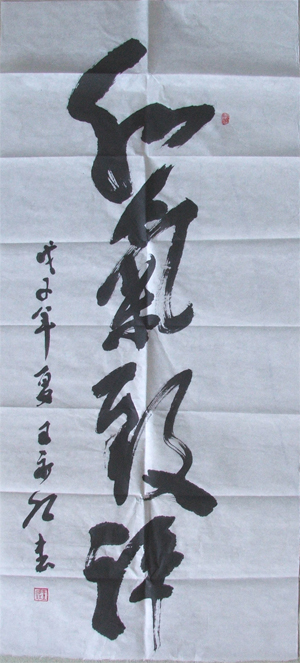 和氣致祥
戊子年夏王永書